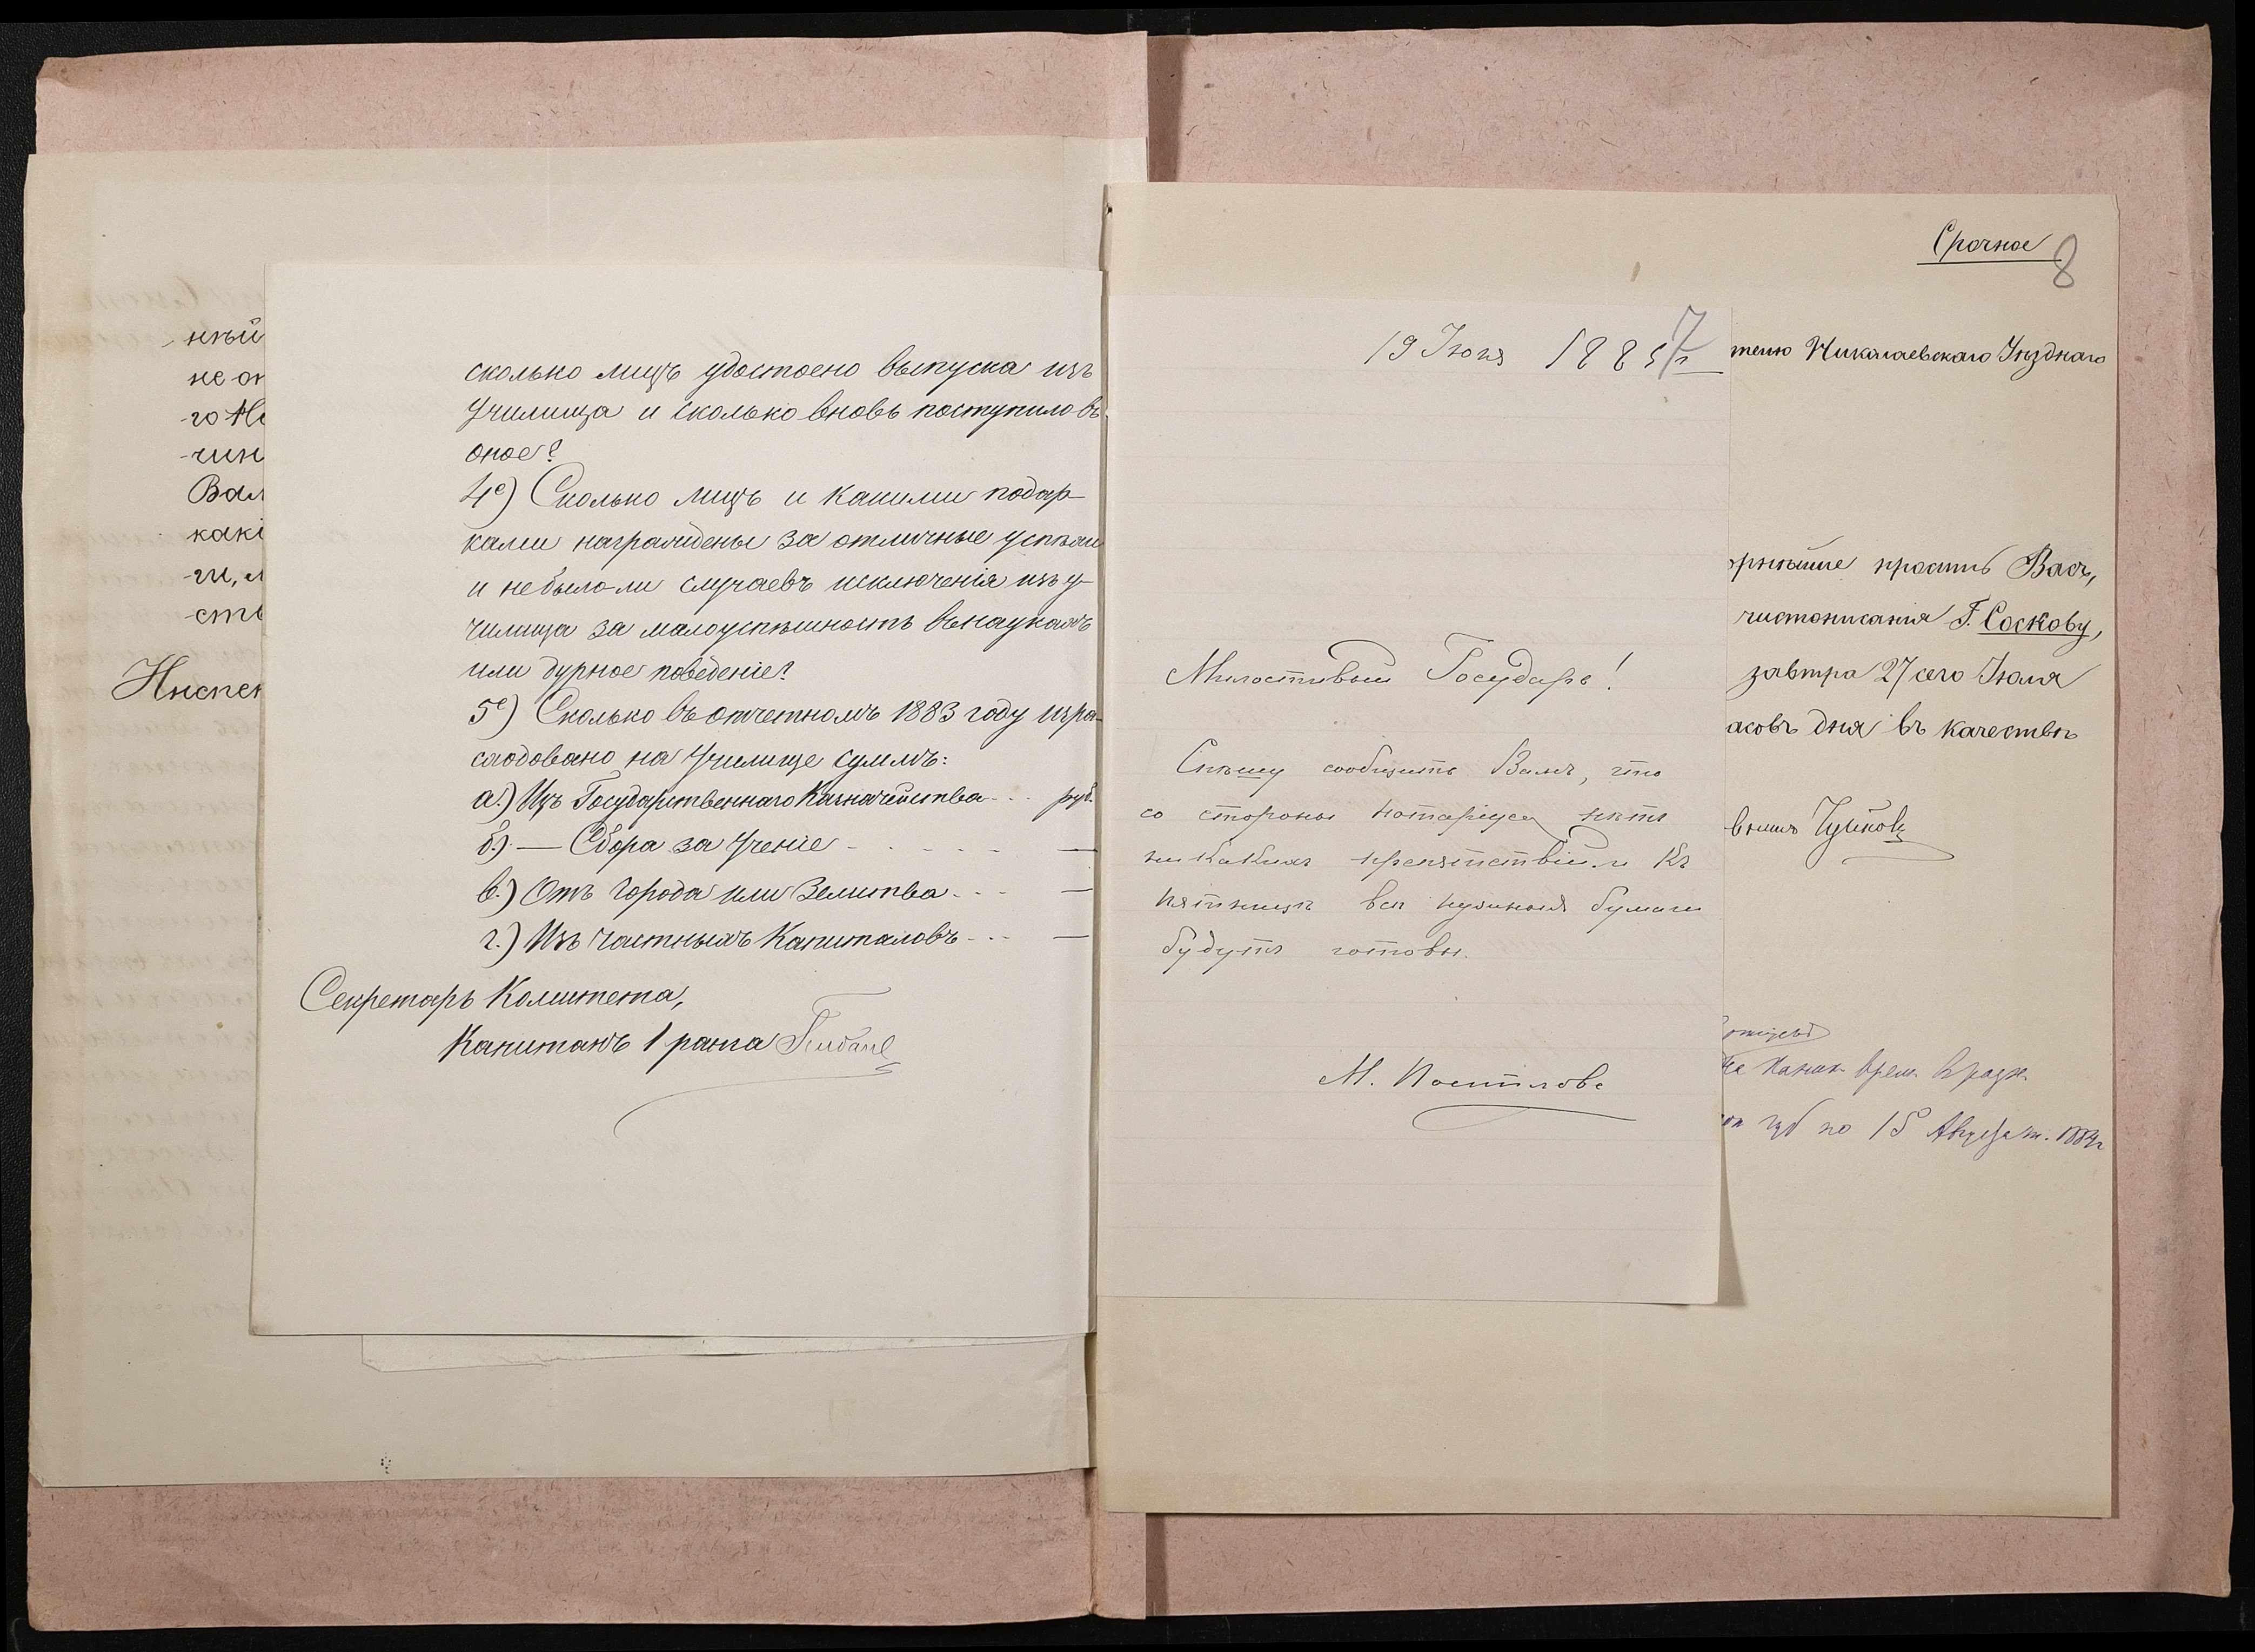 -нѣй
не от
-го Не
-чин
Вал
какi
-ги, л
-сть
Инспек
сколько лицъ удостоено выпуска изъ
училища и сколько вновь поступило въ
оное?
4е) Сколько лицъ и какими подар-
ками награждены за отличные успѣхи
и не было-ли случаевъ исключенія изъ у-
чилища за малоуспѣшность въ наукахъ
или дурное поведеніе?
5е) Сколько въ отчетномъ 1883 году израс-
ходовано на училище суммъ:
а.) Изъ Государственнаго Казначейства - - - руб.
б.) — Сбора за ученіе - - - - - —
в.) Отъ города или Земства - - - —
г.) Изъ частныхъ Капиталовъ - - - —
Секретарь Комитета,
Капитанъ 1 ранга
19 Іюня 1885 г
7
Милостивый Государь!
Спѣшу сообщить Вамъ, что
со стороны нотаріуса нѣтъ
никакихъ препятствій и къ
пятницѣ всѣ нужныя бумаги
будутъ готовы.
М. Постловъ
Срочное
8
телю Николаевскаго Уѣзднаго
орнѣйше просить Васъ,
чистописанія Г. Соскову,
завтра 27 сего Іюля
асовъ дня въ качествѣ
по 15 Августа 1884 г